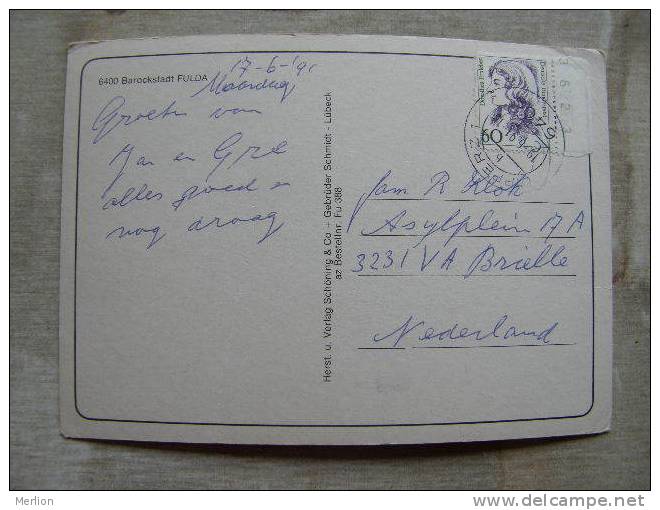 6400 Barockstadt FULDA
17-6-'91
Maandag
Groeten van
Jan en Gré
alles goed en
nog droog
Herst. u. Verlag Schöning & Co + Gebrüder Schmidt - Lübeck
az Bestellnr. Fu 388
60
fam R Klok
Asylplein 17 A
3231 VA Brielle
Nederland
Merlion
http://www.delcampe.net